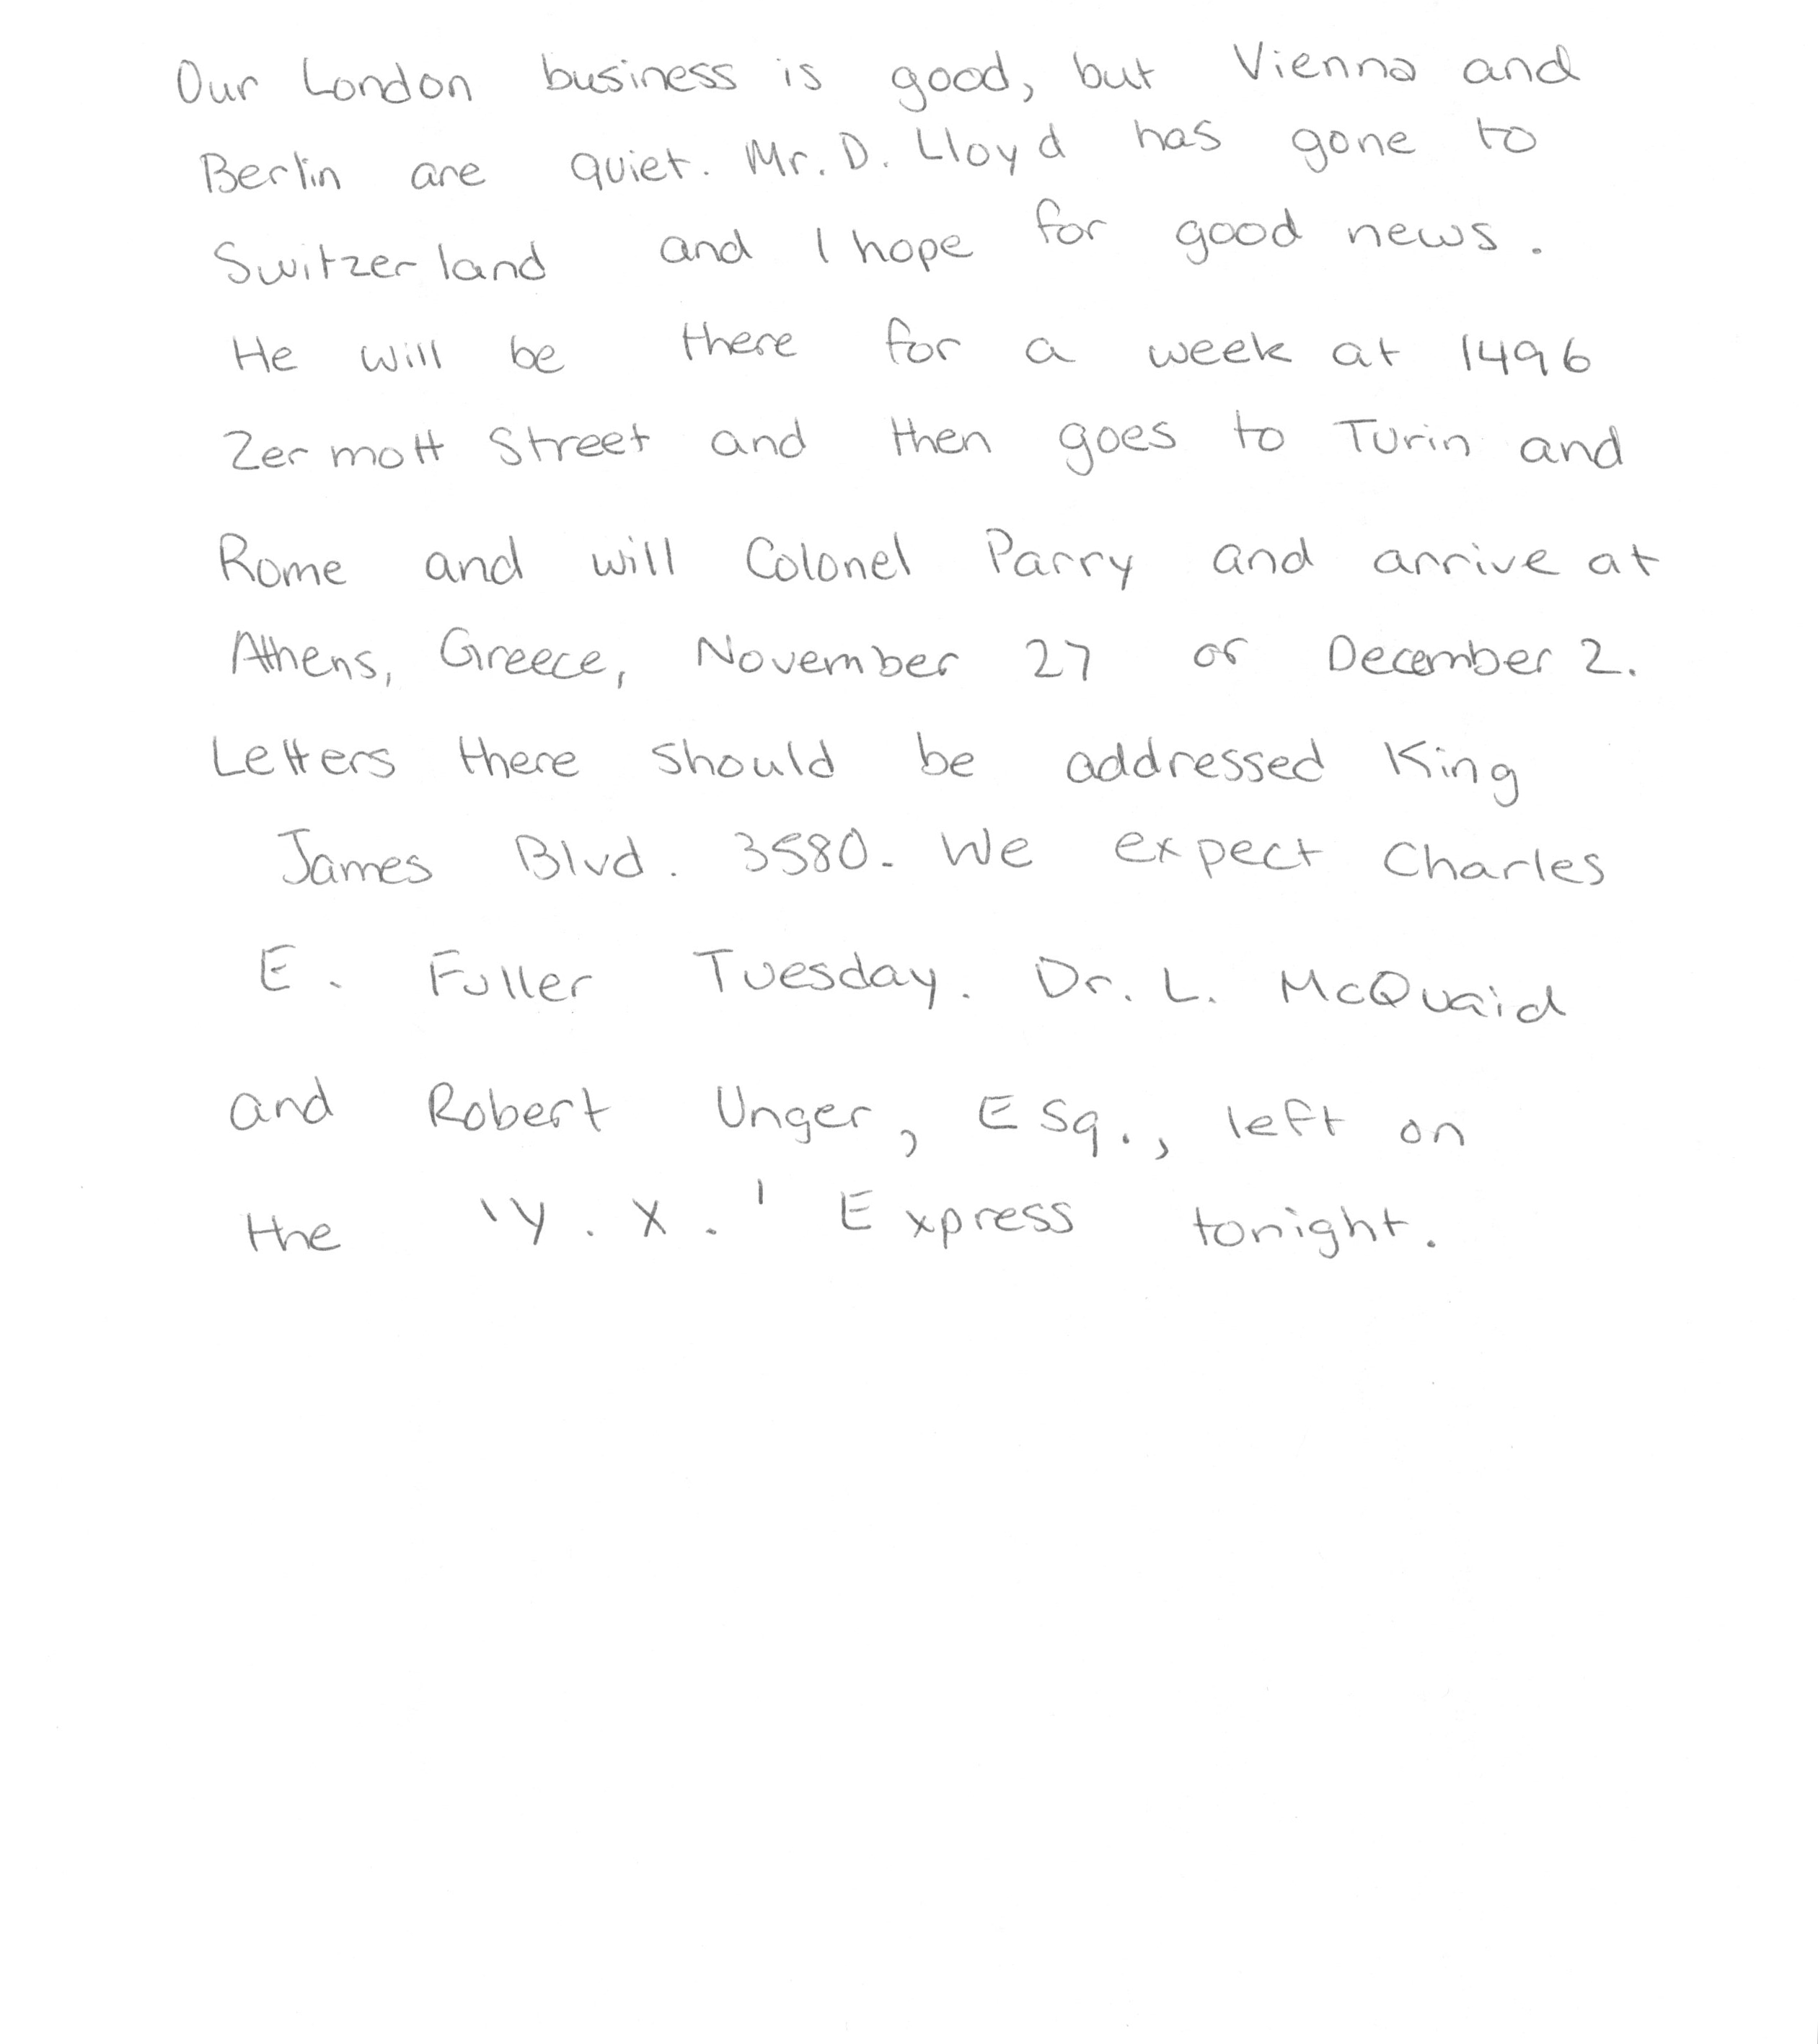 Our London business is good, but Vienna and
Berlin are quiet. Mr. D. Lloyd has gone to
Switzerland and I hope for good news.
He will be there for a week at 1496
Zermott Street and then goes to Turin and
Rome and will Colonel Parry and arrive at
Athens, Greece, November 27 or December 2.
Letters there should be addressed King
James Blvd. 3580. We expect Charles
E. Fuller Tuesday. Dr. L. McQuaid
and Robert Unger, Esq., left on
the 'Y. X.' Express tonight.